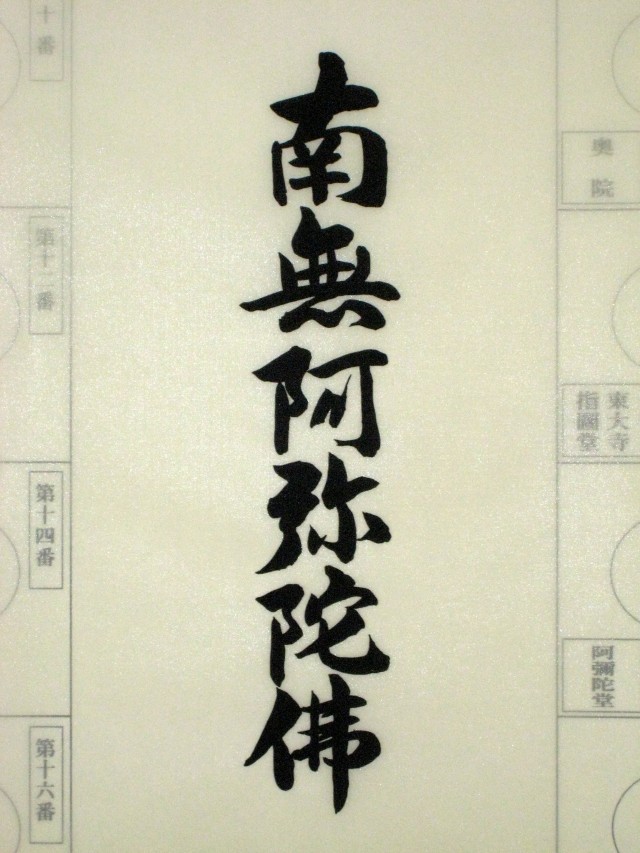 南無阿弥陀佛
奥院
東大寺
指圖堂
阿彌陀堂
十番
第十二番
第十四番
第十六番